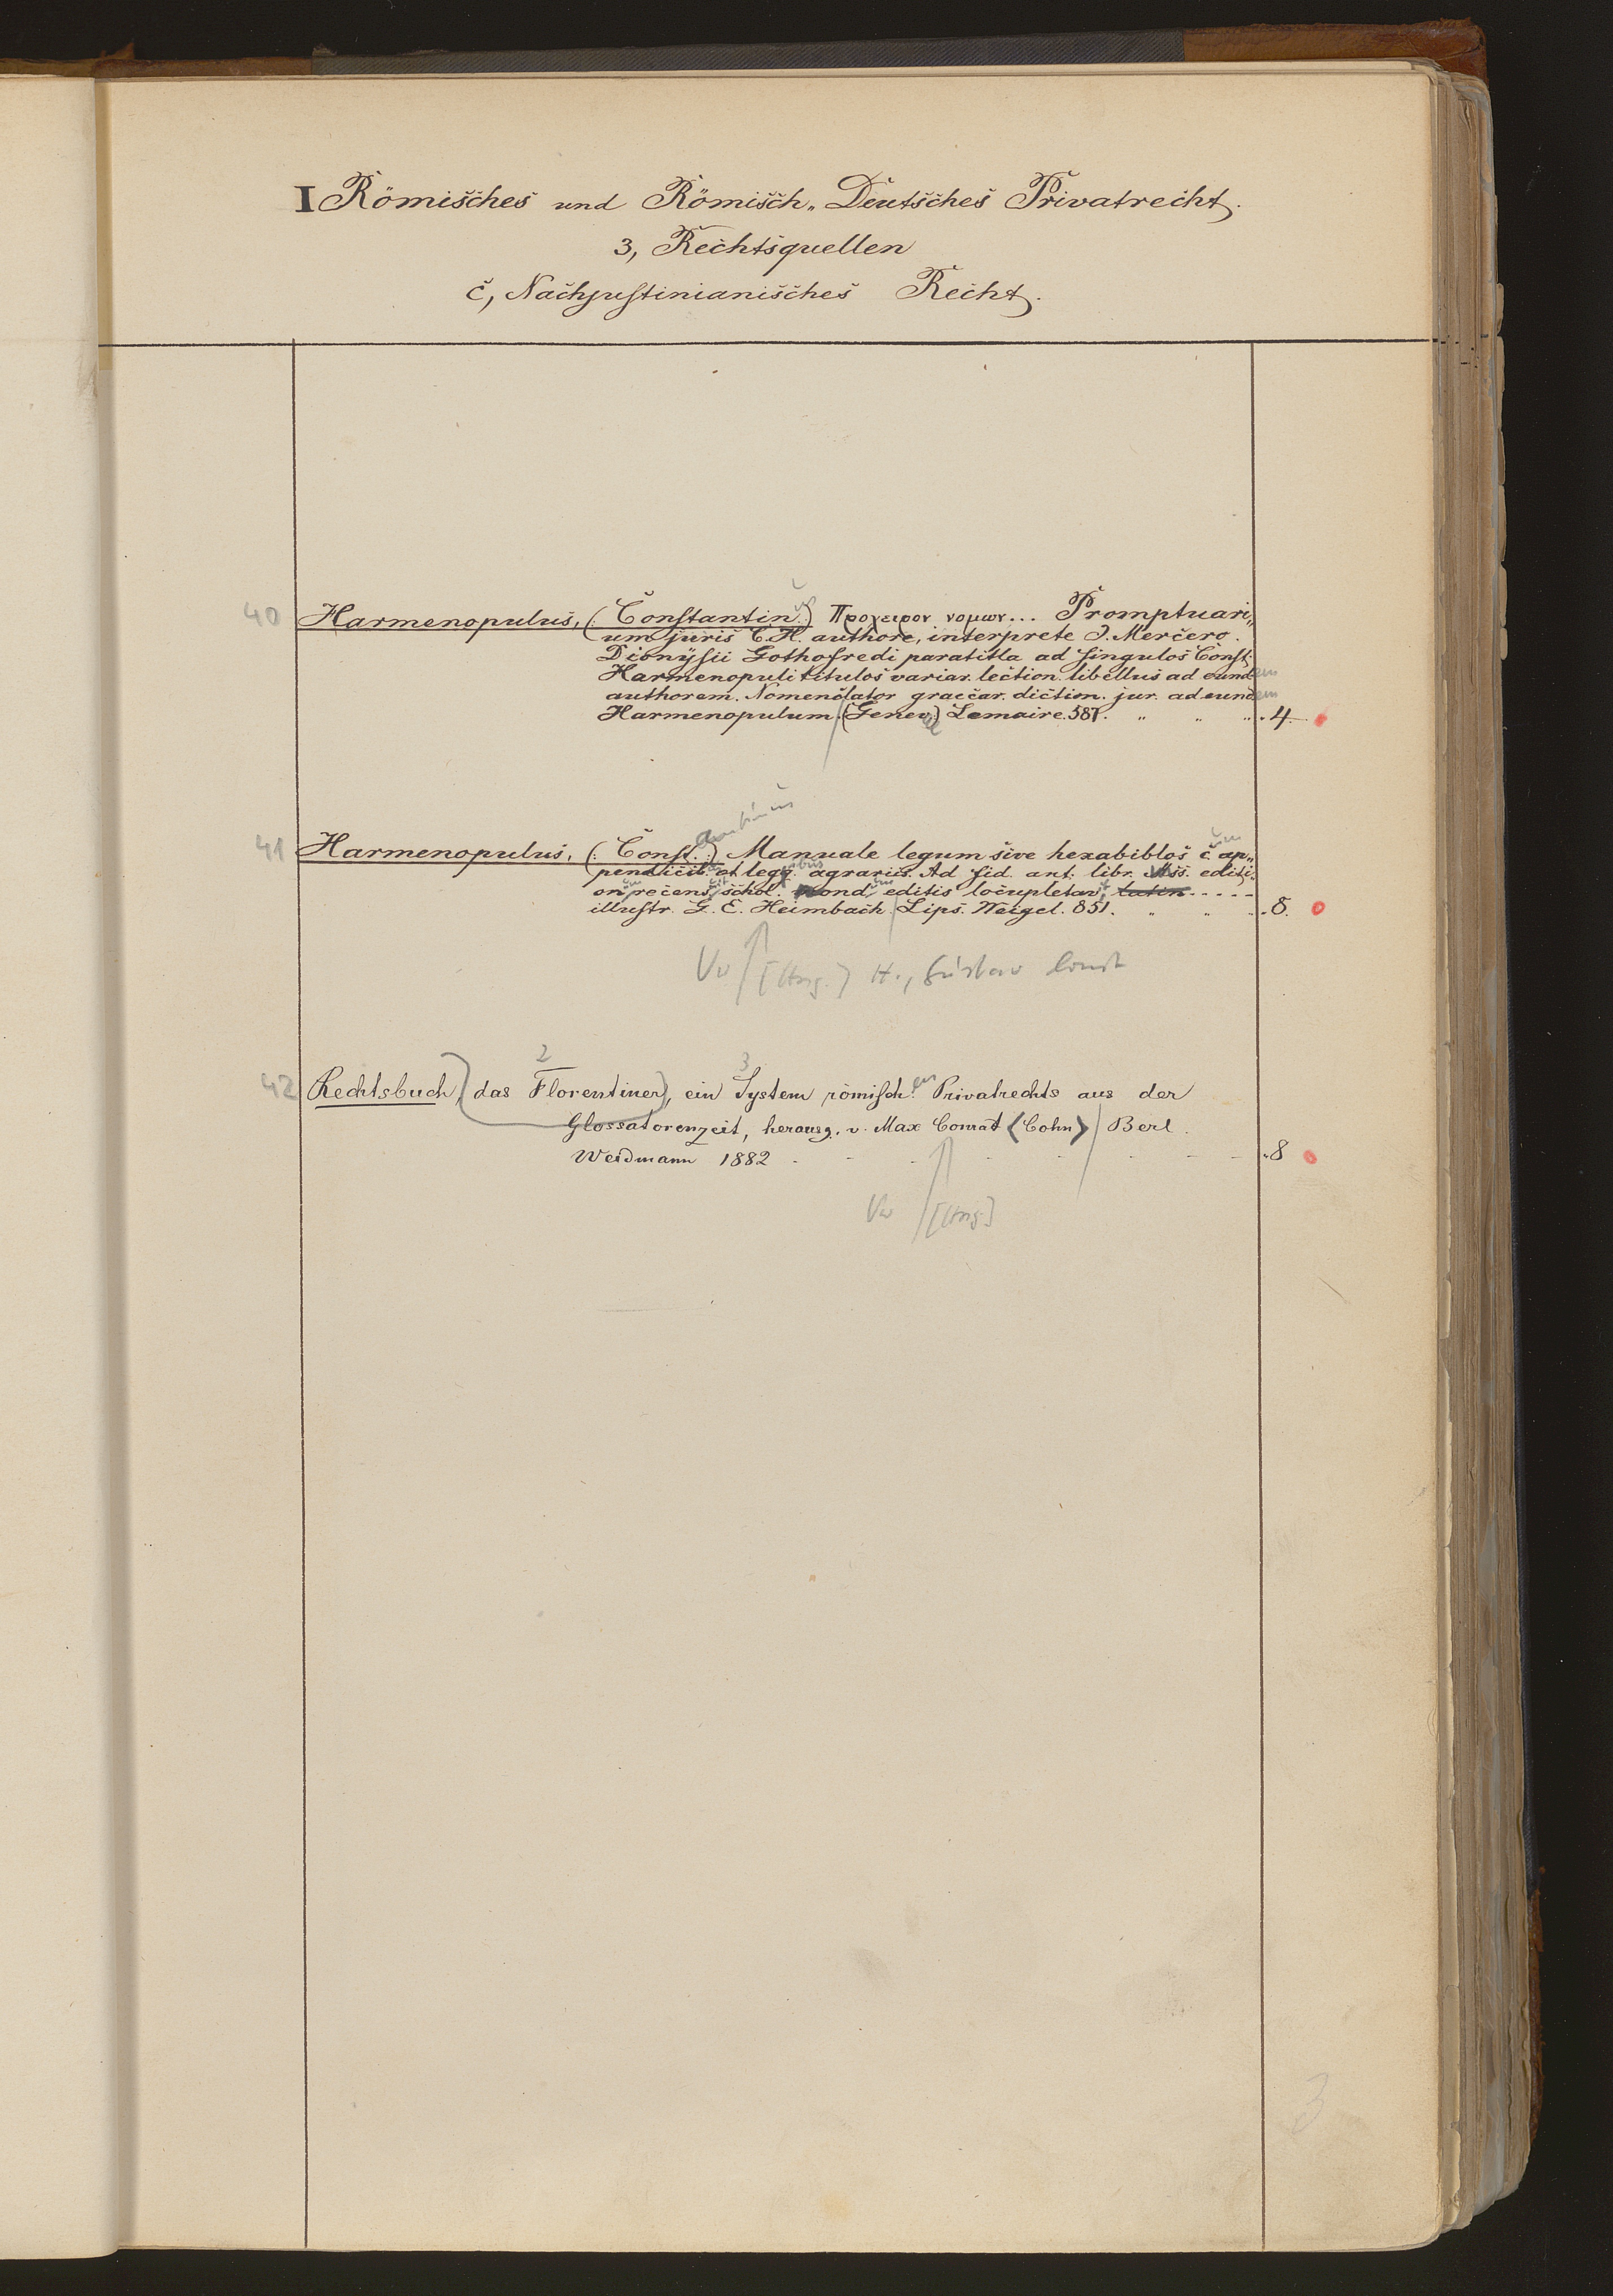 I Römisches und Römisch„ Deutsches Privatrecht.
3, Rechtsquellen
c, Nachjustinianisches Recht.
40 Harmenopulus, (: Constantin:)us Προχειρον νομων... Promptuari„
um juris C. H. authore, interprete J. Mercero.
Dionÿsii Gothofredi paratitla ad singulos Const.
Harmenopuli titulos variar. lection. libellus ad eundem
authorem. Nomenclator graecar. diction. jur. ad eundem
Harmenopulum. (Genev.) Lemaire. 587. „ „ „ 4.
antinus
41 Harmenopulus, (: Const. :) Manuale legum sive hexabiblos c.um ap„
pendicib.us et legg.ibus agrariis. Ad fid. ant. libr. Mss. editi„
on.em recens.uit schol. nond.um editis locupletav.it latin. - - - -
illustr. G. E. Heimbach. Lips. Weigel. 851. „ „ „ 8.
Vw [Hrsg.] H., Gustav Ernst
2 3
42 Rechtsbuch, (das Florentiner), ein System römisch.en Privatrechts aus der
Glossatorenzeit, herausg. v. Max Conrat (Cohn) Berl.
Weidmann 1882 - - - - - - - „8
Vw [Hrsg]
3